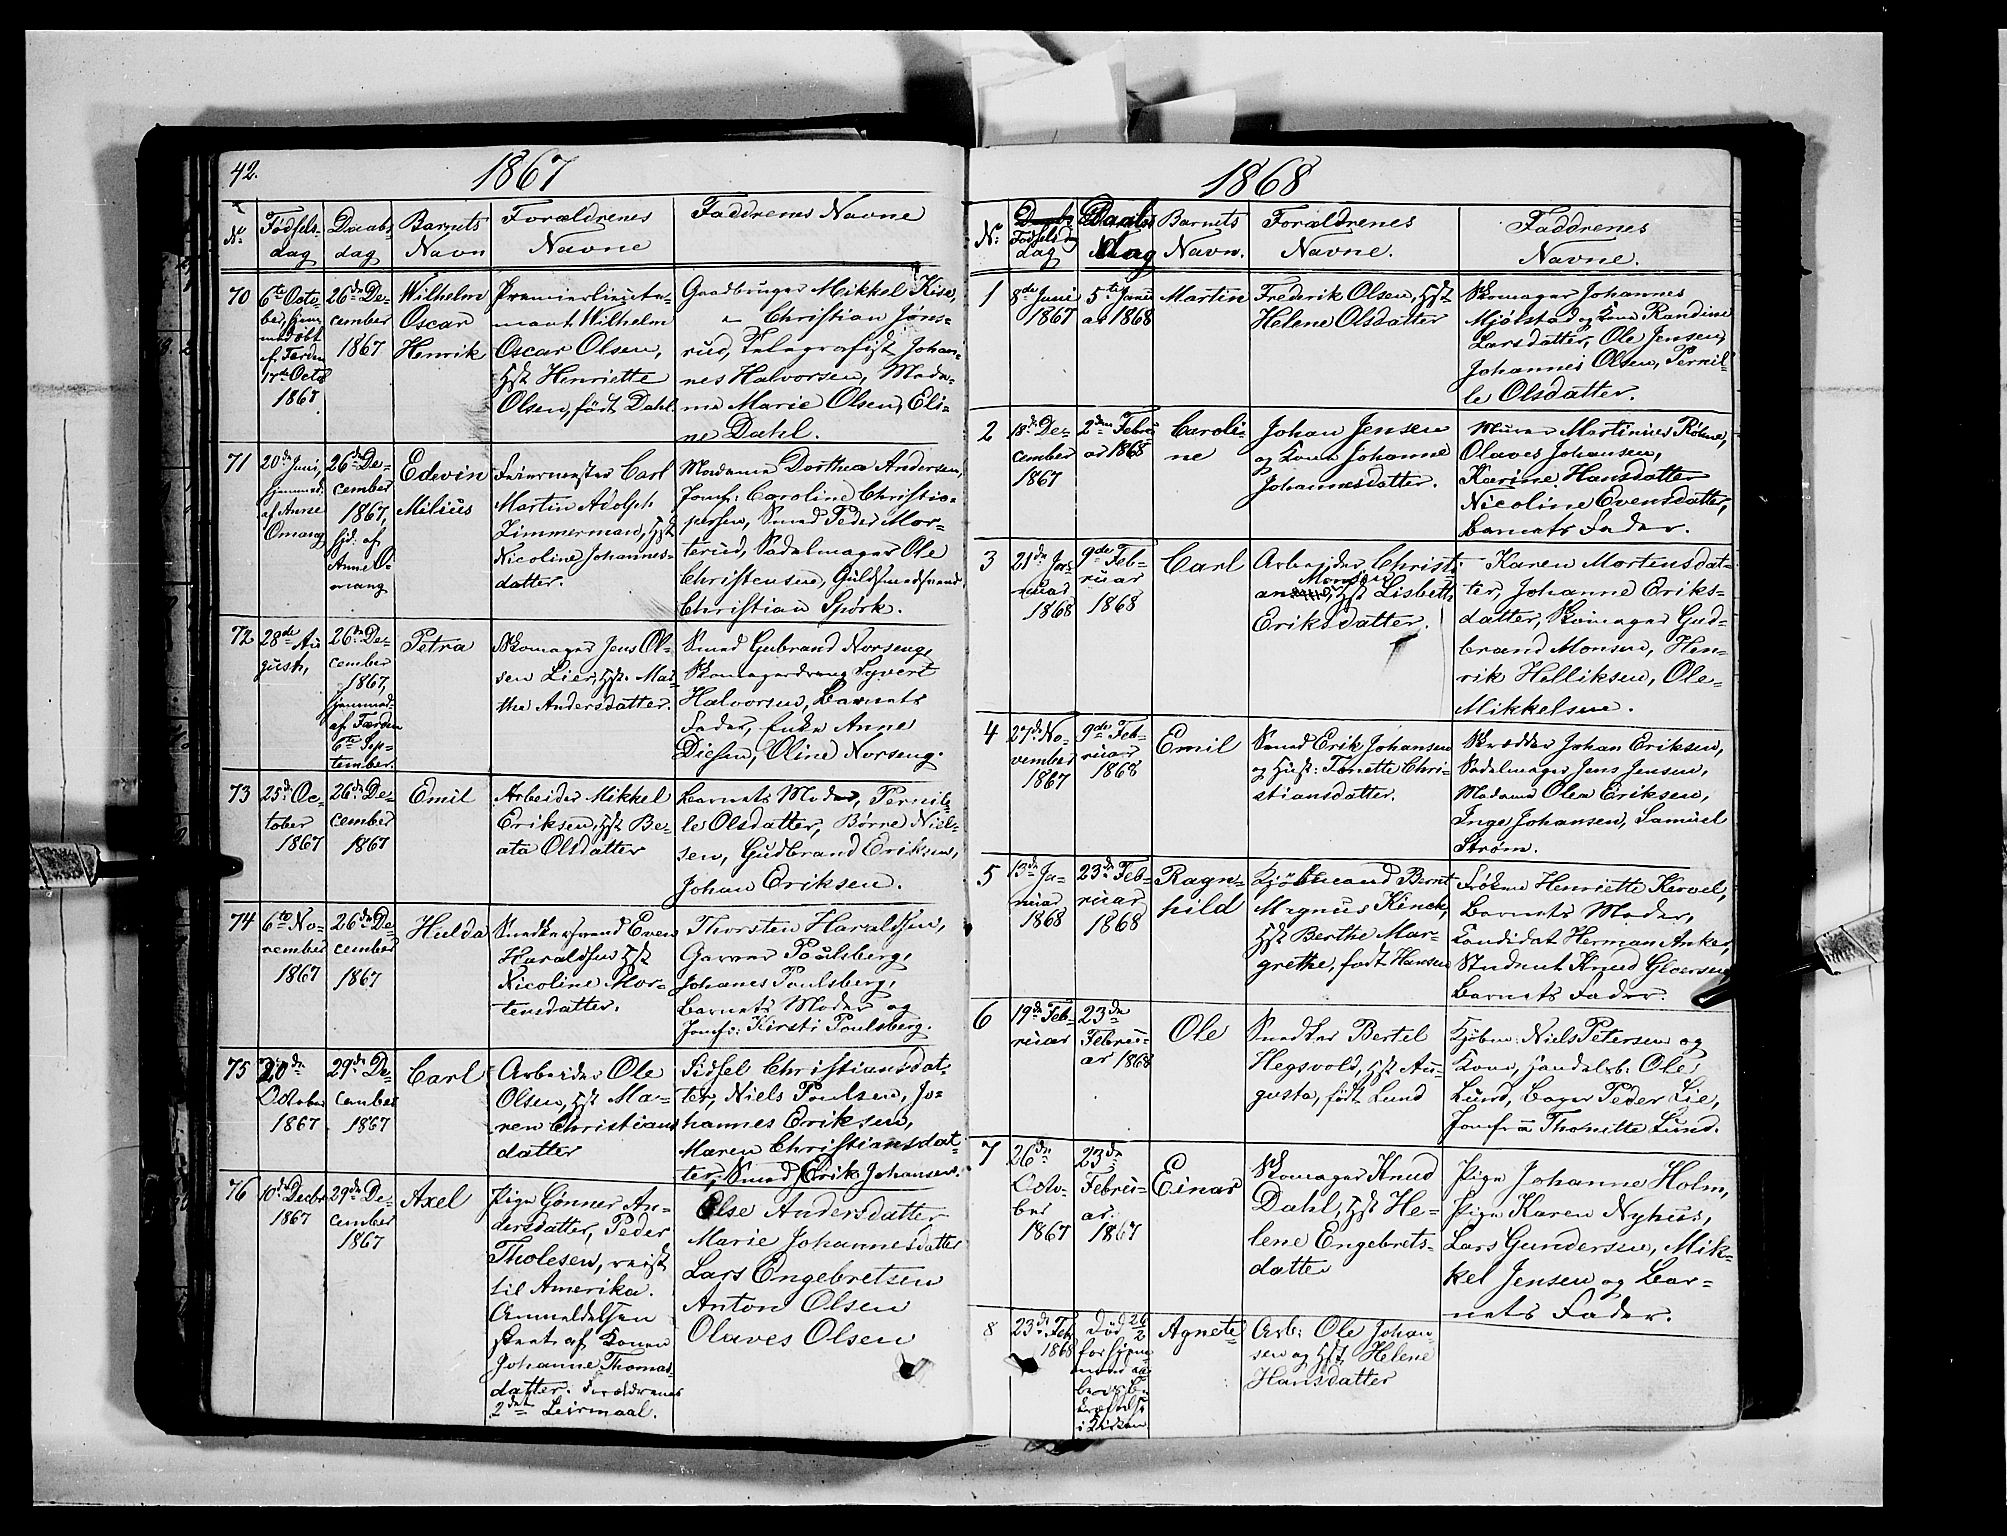 42.
1867
Nº
Fødsels-
dag
Daabs
dag
Barnets
Navn
Forældrenes
Navne
Faddrenes Navne
70
6te Octo-
ber, hjem-
medøbt
af Færden
17de Octb
1867
26de De-
cember
1867
Wilhelm
Oscar
Henrik
Premierlieute-
nant Wilhelm
Oscar Olsen,
Hst Henriette
Olsen, født Dahl.
Gaardbruger Mikkel Kise,
" Christian Jøns-
rud, Telegrafist Johan-
nes Halvorsen, Mada-
me Marie Olsen, Eli-
ne Dahl.
71
20de Juni,
hjemmed.
af Anne
Omang
26de De-
cember
1867,
hjd. af
Anne O-
mang
Edwin
Milius
Carl
Martin Adolph
Zimmerman, Hst
Nicoline Johannes-
datter.
Madame Dorthea Andersen,
Jomf: Caroline Christo-
persen, Smed Peder Mor-
terud, Sadelmager Ole
Christensen, Guldsmedsvend
Christian Spørk.
72
28de Au
gust,
26de De-
cember
1867,
hjemmed-
af Færden
6te Sep-
tember.
Petra
Skomager Jens Ol-
sen Lier, Hst. Mar-
the Andersdatter.
Smed Gubrand Norseng,
Skomagerdreng Syvert
Halvorsen, Barnets
Fader, Enke Anne
Diesen, Oline Norseng.
73
25de Oc-
tober
1867
26de De-
cember
1867
Emil
Arbeider Mikkel
Eriksen, Hst Be-
ata Olsdatter
Barnets Moder, Pernil-
le Olsdatter, Børre Niel-
sen, Gudbrand Eriksen,
Johan Eriksen.
74
6te No-
vember
1867
26de De-
cember
1867
Hulda
Snedkersvend Even
Haraldsen Hst
Nicoline Mor-
tensdatter.
Thorsten Haraldsen,
Garver Paulsberg,
Johanes Paulsberg,
Barnets Moder og
Jomfr: Kirsti Paulsberg.
75
20de
October
1867
29de De-
cember
1867
Carl
Arbeider Ole
Olsen, Hst Ma-
ren Christians
datter
Sidsel Christiansdat-
ter, Niels Poulsen, Jo-
hannes Eriksen,
Maren Christiansdat
ter, Smed Erik Johansen.
76
10de Decbr
1867
29de De-
cember
1867
Axel
Pige Gønner An-
dersdatter, Peder
Tholesen, reist
til Amerika.
Anmeldelsen
skeet af Konen
Johanne Thomas
datter. Forældrenes
2det Leiermaal.
Else Andersdatter
Marie Johannesdatter
Lars Engebretsen
Anton Olsen
Olaves Olsen
1868
Nº:
Fødsels
dag
Daabs
dag
Barnets
Navn.
Forældrenes
Navne.
Faddrenes
Navne.
1
8de Juni
1867
5te Janu
ar 1868
Martin
Frederik Olsen, Hst
Helene Olsdatter
Skomager Johannes
Mjølstad og Kone Randine
Larsdatter, Ole Jensen,
Johannes Olsen, Pernil-
le Olsdatter.
2
18de De-
cember
1867
2den Febru
ar 1868
Caroli-
ne
Johan Jensen
og Kone Johanne
Johannesdatter.
Murer Martinius Røhne,
Olaves Johansen,
Karine Hansdatter
Nicoline Evensdatter,
Barnets Fader.
3
21de Ja-
nuar
1868
9de Feb-
ruar
1868
Carl
Arbeider Christi-
Monsen
an Hst Lisbeth
Eriksdatter.
Karen Mortensdat-
ter, Johanne Eriks-
datter, Skomager Gud-
brand Monsen, Hen-
rik Helliksen, Ole
Mikkelsen.
4
27de No-
vember
1867
9de Feb-
ruar
1868
Emil
Smed Erik Johansen
og Hust: Tonette Chri-
stiansdatter.
Skrædder Johan Eriksen,
Sadelmager Jens Jensen,
Madame Olea Eriksen,
Inge Johansen, Samuel
Strøm.
5
13de Ja-
nuar
1868
23de Feb-
ruar
1868
Ragn-
hild
Kjøbmand Bernt
Magnus Kinck,
Hst Berthe Mar-
grethe, født Hansen
Frøken Henriette Kervel,
Barnets Moder,
Candidat Herman Anker,
Student Knud Gloersen
Barnets Fader.
6
19de Feb-
ruar
23de
Febru-
ar 1868
Ole
Snedker Bertel
Hegsvold, Hst Au-
gusta, født Lund
Kjøbm: Niels Petersen og
Kone, Handelsb: Ole
Lund, Bager Peder Lie,
Jomfru Thonette Lund.
7
26de
Octo-
ber
1867
23de
Febru-
ar.
1867
Einar
Skomager Knud
Dahl, Hst He-
lene Engebrets-
datter
Pige Johanne Holm,
Pige Karen Nyhus,
Lars Gundersen, Mik-
kel Jensen og Bar-
nets Fader.
8
23de Feb
1868
Død 26/2
før hjem-
i Kirken
Agnete
Arb: Ole Johan-
sen og Hst Helene
Hansdatter